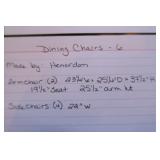 Dining Chairs - 6
Made by: Henerdon
Armchair (2) 23¾"W x 25½"D x 37½"H
19½" Seat 25½" arm ht
Side Chairs (4) 22" W